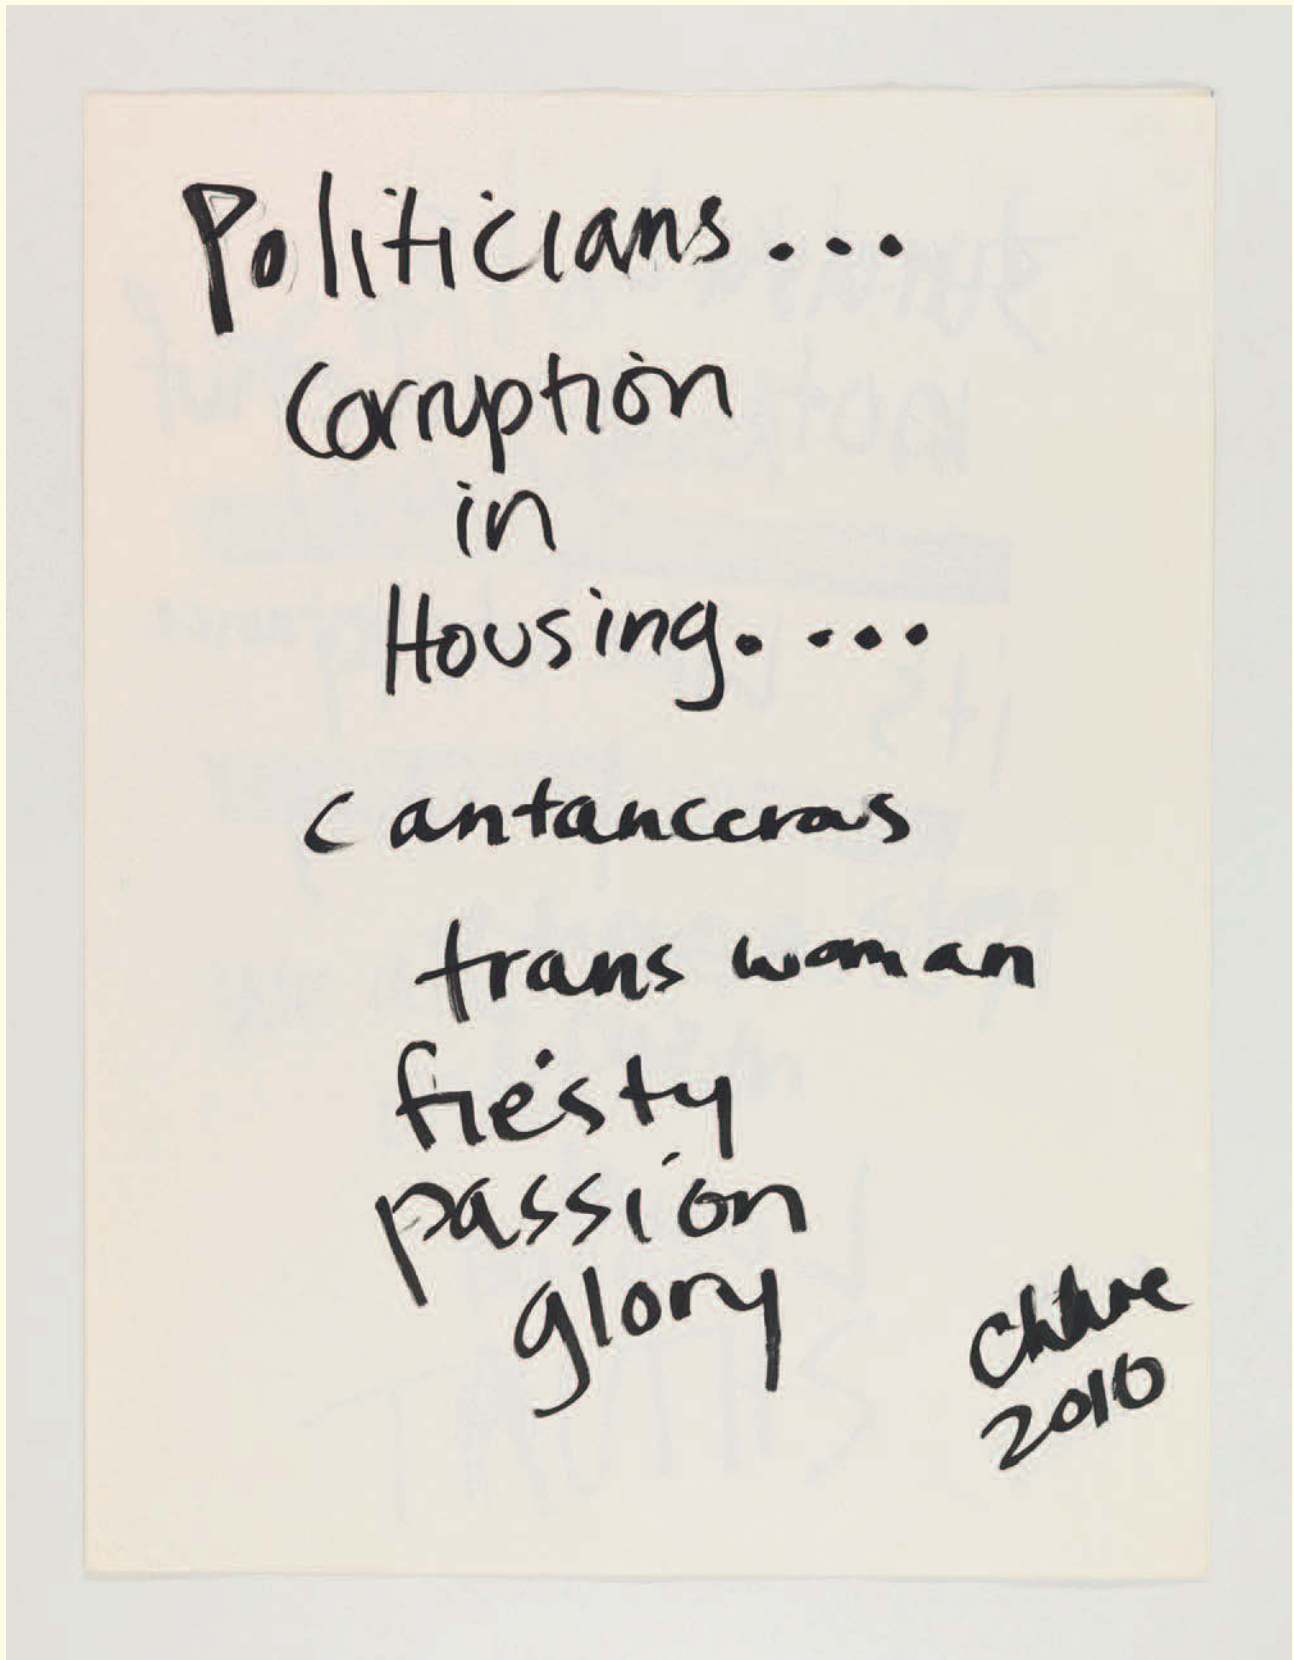 Politicians...
Corruption
in
Housing....
cantancerous
trans woman
fiesty
passion
glory
2010